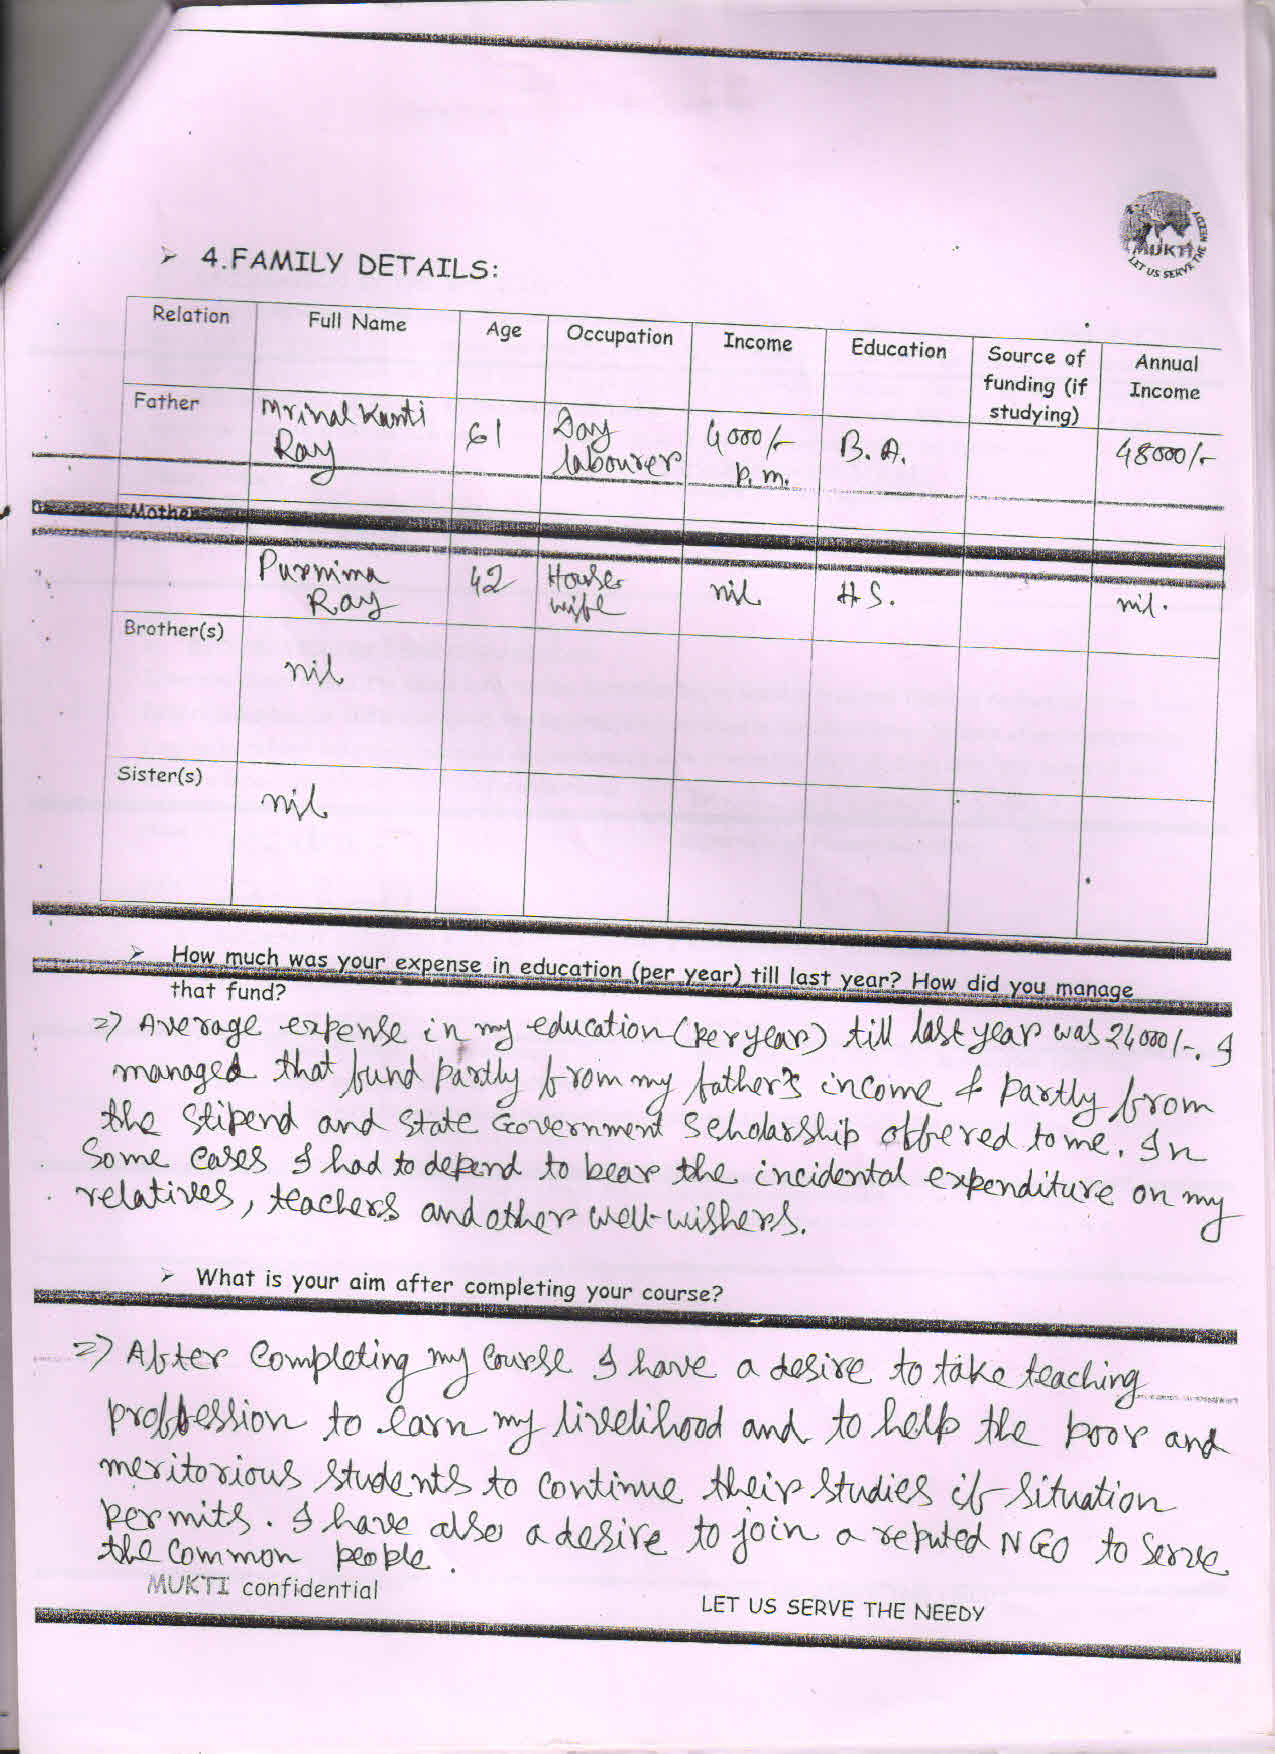 MUKTI
LET US SERVE THE NEEDY
➢ 4.FAMILY DETAILS:
Relation Full Name Age Occupation Income Education Source of funding (if studying) Annual Income
Father Mrinal Kanti Ray 61 Day labourer 4000/- p.m. B.A. 48000/-
Mother Purnima Ray 42 House wife nil H S. nil.
Brother(s) nil
Sister(s) nil
➢ How much was your expense in education (per year) till last year? How did you manage
that fund?
=) Average expense in my education (per year) till last year was 24000/-. I
managed that fund partly from my father's income & partly from
the stipend and State Government Scholarship offered to me. In
Some cases I had to depend to bear the incidental expenditure on my
relatives, teachers and other well-wishers.
➢ What is your aim after completing your course?
=) After completing my course I have a desire to take teaching
proffession to earn my livelihood and to help the poor and
meritorious students to continue their studies if situation
permits. I have also a desire to join a reputed NGO to serve
the common people.
MUKTI confidential
LET US SERVE THE NEEDY